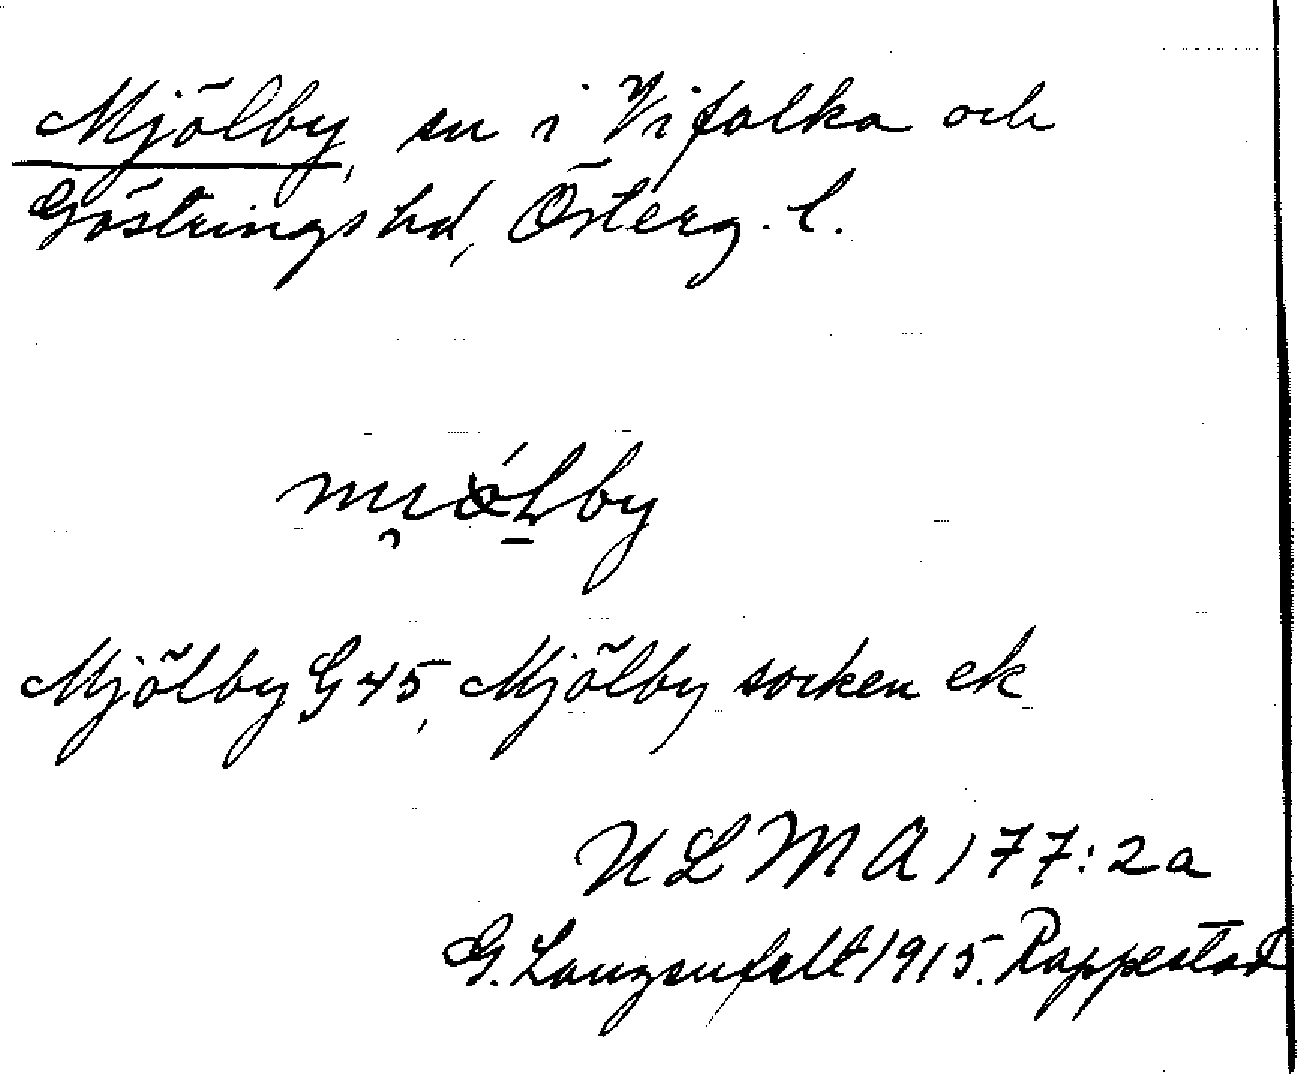 Mjölby, sn i Vifolka och
Göstringshd, Österg. l.
Mjölby G 45, Mjölby socken ek
ULMA 177:2a
G. Langenfelt 1915. Rappestad